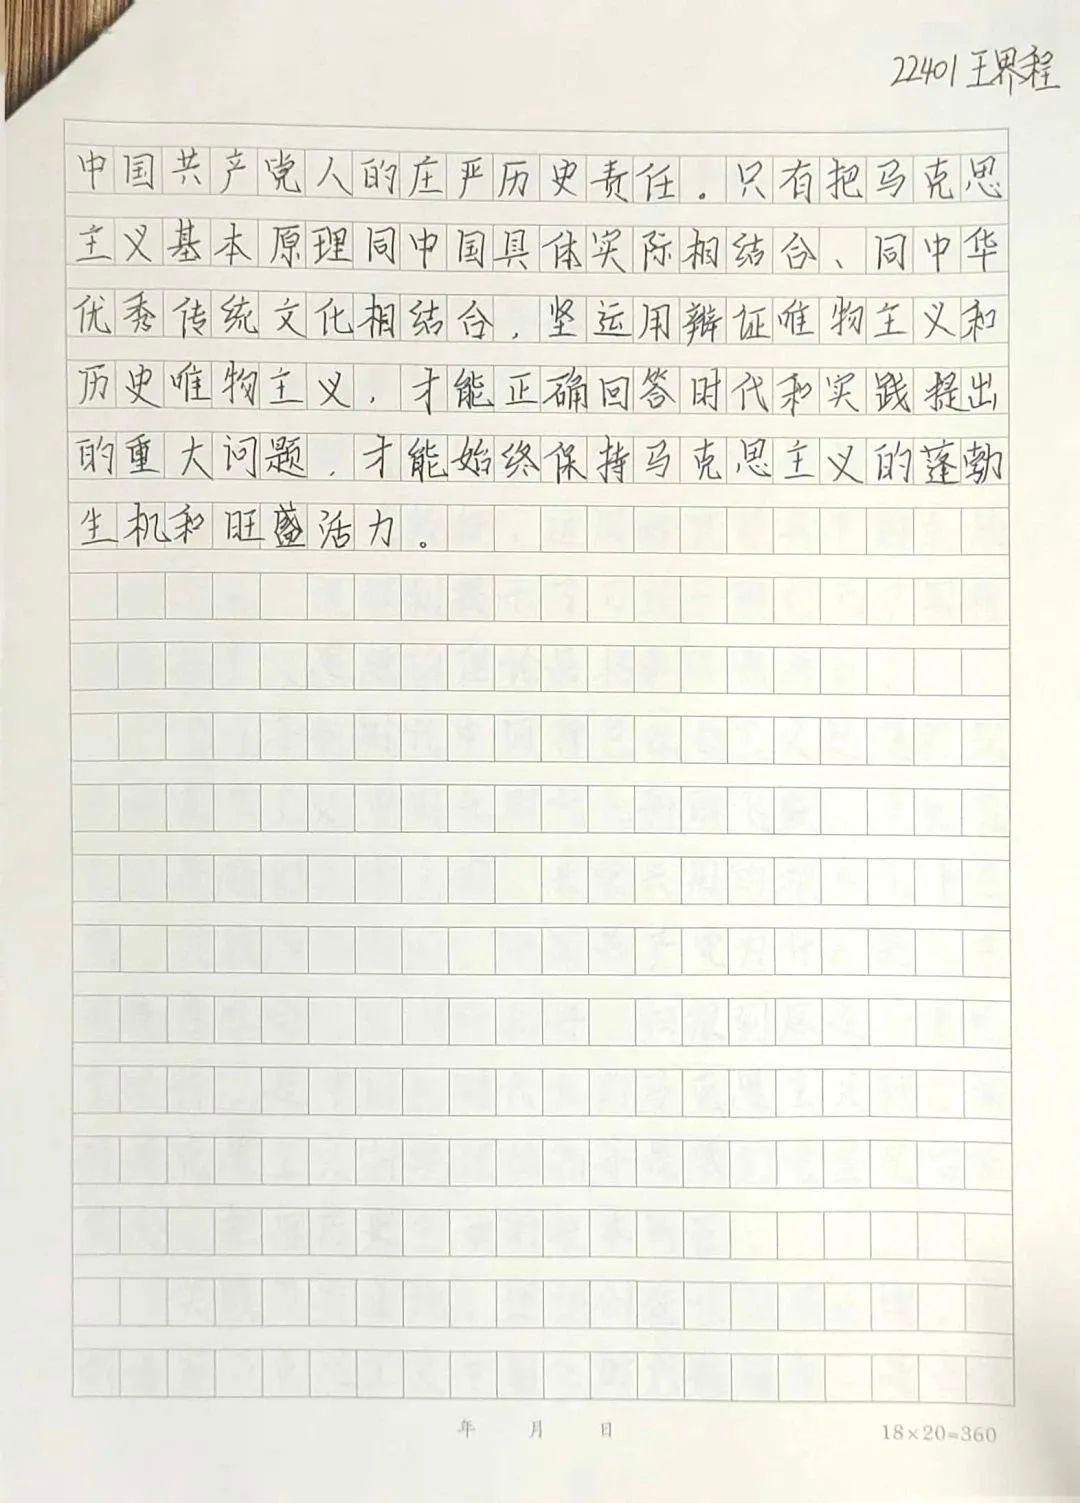 22401 王界程
中国共产党人的庄严历史责任。只有把马克思
主义基本原理同中国具体实际相结合、同中华
优秀传统文化相结合，坚运用辩证唯物主义和
历史唯物主义，才能正确回答时代和实践提出
的重大问题，才能始终保持马克思主义的蓬勃
生机和旺盛活力。
年 月 日
18×20=360